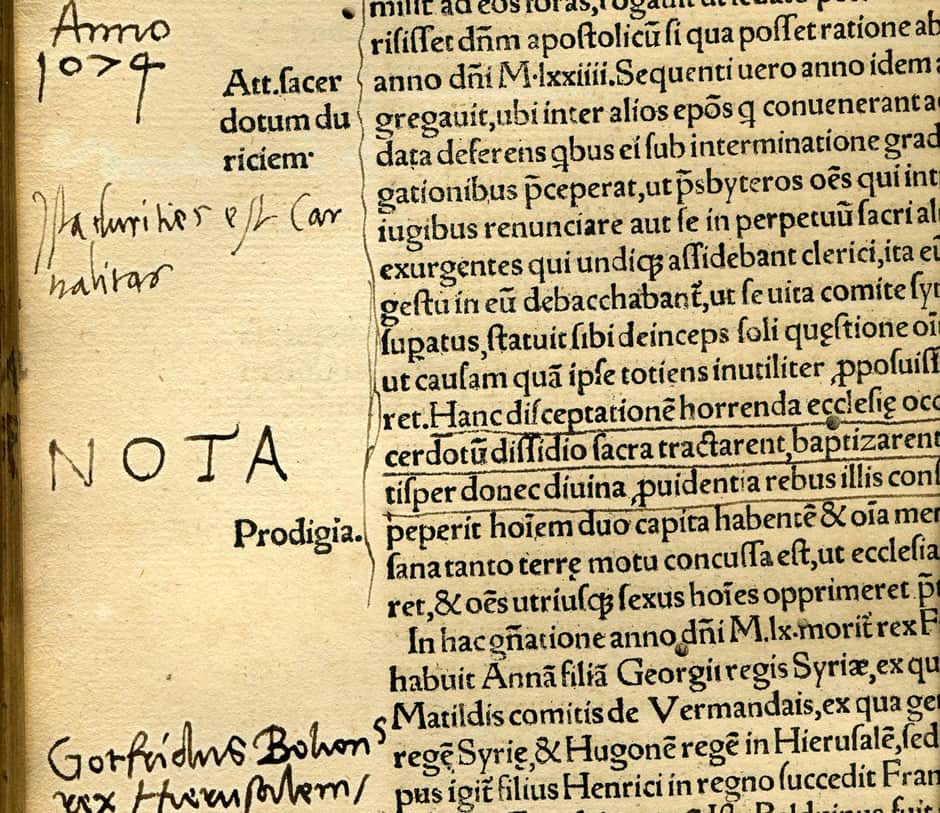 Anno
1074
Att. sacer
dotum du
riciem
Ista durities est Car
nalitas
NOTA
Prodigia.
Gotfridus Bolion
rex Hierusalem/
risisset dñm apostolicū si qua posset ratione ab
anno dñi M.lxxiiii. Sequenti uero anno idem
gregauit, ubi inter alios ep̄os q conuenerant a
data deferens qbus ei sub interminatione grad
gationibus p̄ceperat, ut p̄sbyteros oēs qui int
iugibus renunciare aut se in perpetuū sacri al
exurgentes qui undiqꝫ assidebant clerici, ita eū
gestu in eū debacchabant̄, ut se uita comite syn
supatus, statuit sibi deinceps soli quęstione oī
ut causam quā ipse totiens inutiliter ꝓposuiss
ret. Hanc disceptationē horrenda ecclesię occ
cerdotū dissidio sacra tractarent, baptizarent
tisper donec diuina ꝓuidentia rebus illis cons
peperit hoīem duo capita habentē & oīa mem
sana tanto terrę motu concussa est, ut ecclesia
ret, & oēs utriusqꝫ sexus hoīes opprimeret p̄t
In hac gñatione anno dñi M.lx. morit̄ rex F
habuit Annā filiā Georgii regis Syriæ, ex qu
Matildis comitis de Vermandais, ex qua gen
regē Syrię, & Hugonē regē in Hierusalē, sed
pus igit̄ filius Henrici in regno succedit Fran